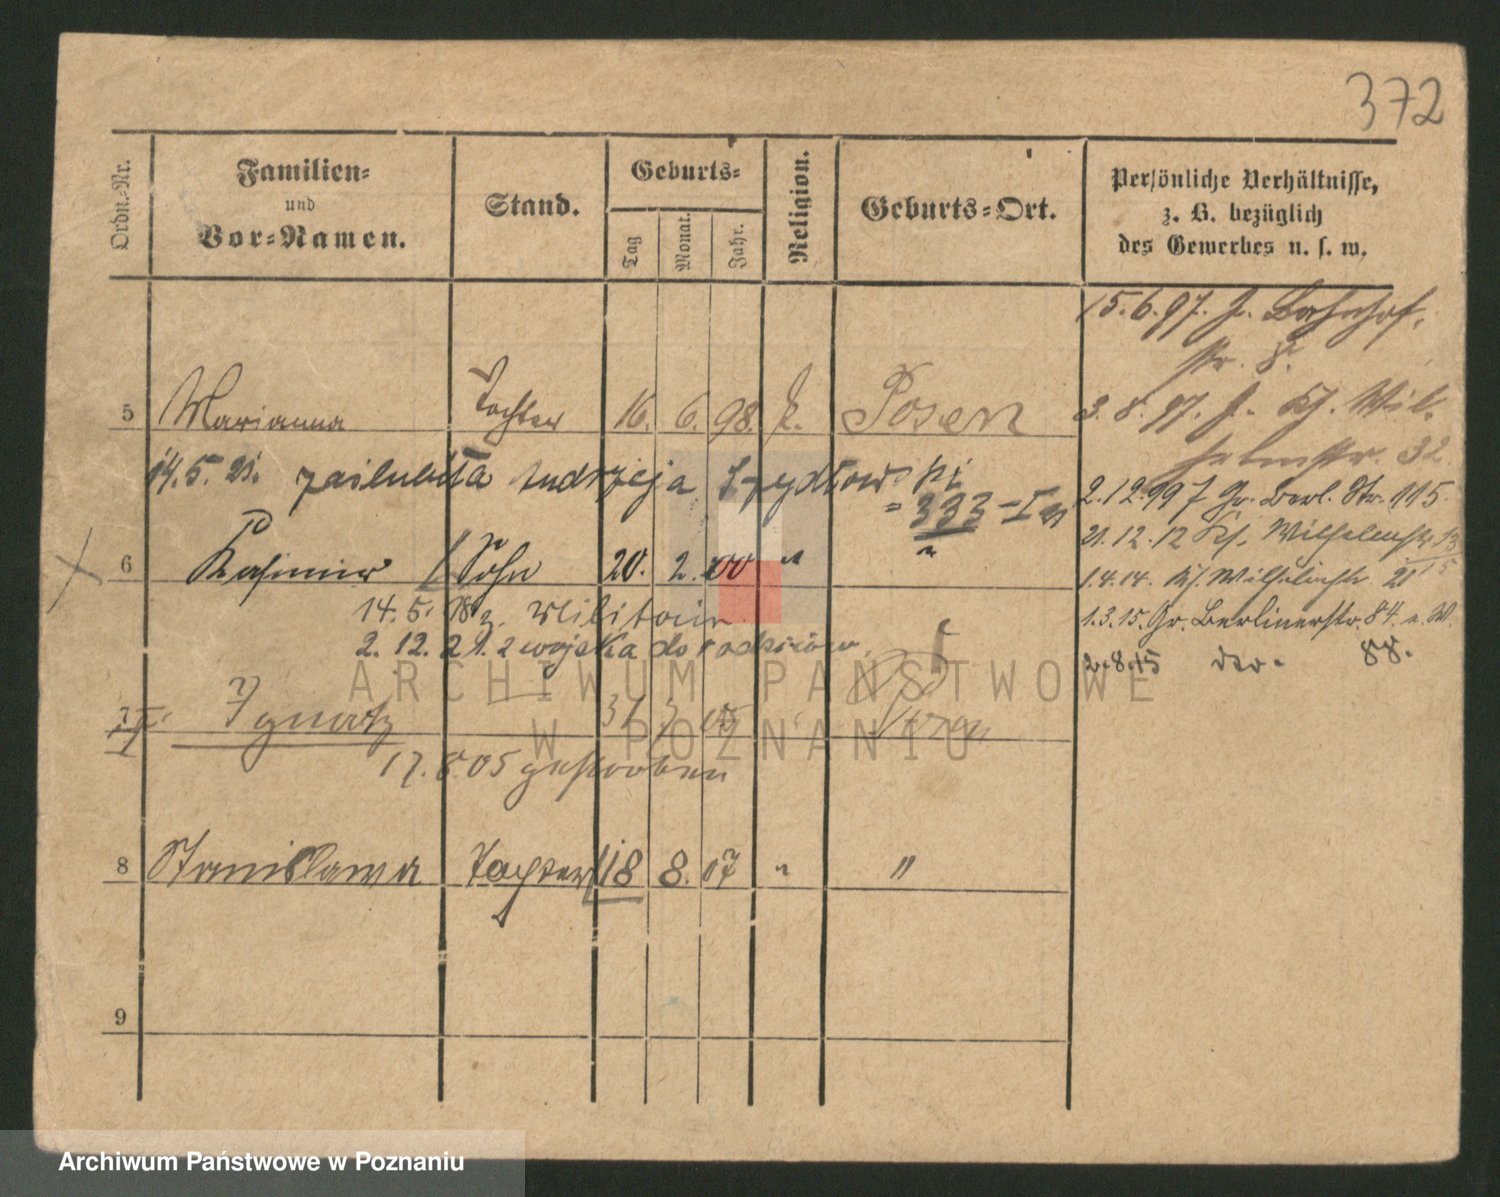 372
Ordn.-Nr.
Familien-
und
Vor-Namen.
Stand.
Geburts-
Tag
Monat.
Jahr.
Religion.
Geburts-Ort.
Persönliche Verhältnisse,
z. B. bezüglich
des Gewerbes u. s. w.
15.6.97. J. Bahnhof-
str. 8.
5 Marianna Tochter 16. 6. 98. k. Posen
3.8.97. J. Wil-
helmstr. 32
14.5.21. zaślubiła Andrzeja Szydłowski
= 333 - I
2.12.99 Gr. Berl. Str. 115.
21.12.12 Kl. Wilhelmstr. 13
6 Kasimir Sohn 20. 2. 00 " "
1.4.14. Kl. Wilhelmstr. 21
14.5.18 z. Militair
1.3.15. Gr. Berlinerstr. 84.
2.12.21. z wojska do rodziców.
2.8.15 88.
ARCHIWUM PAŃSTWOWE
W POZNANIU
7 Ignatz 31 7 05
17.8.05 gestorben
8 Stanislawa Tochter 18 8. 07 " "
9
Archiwum Państwowe w Poznaniu